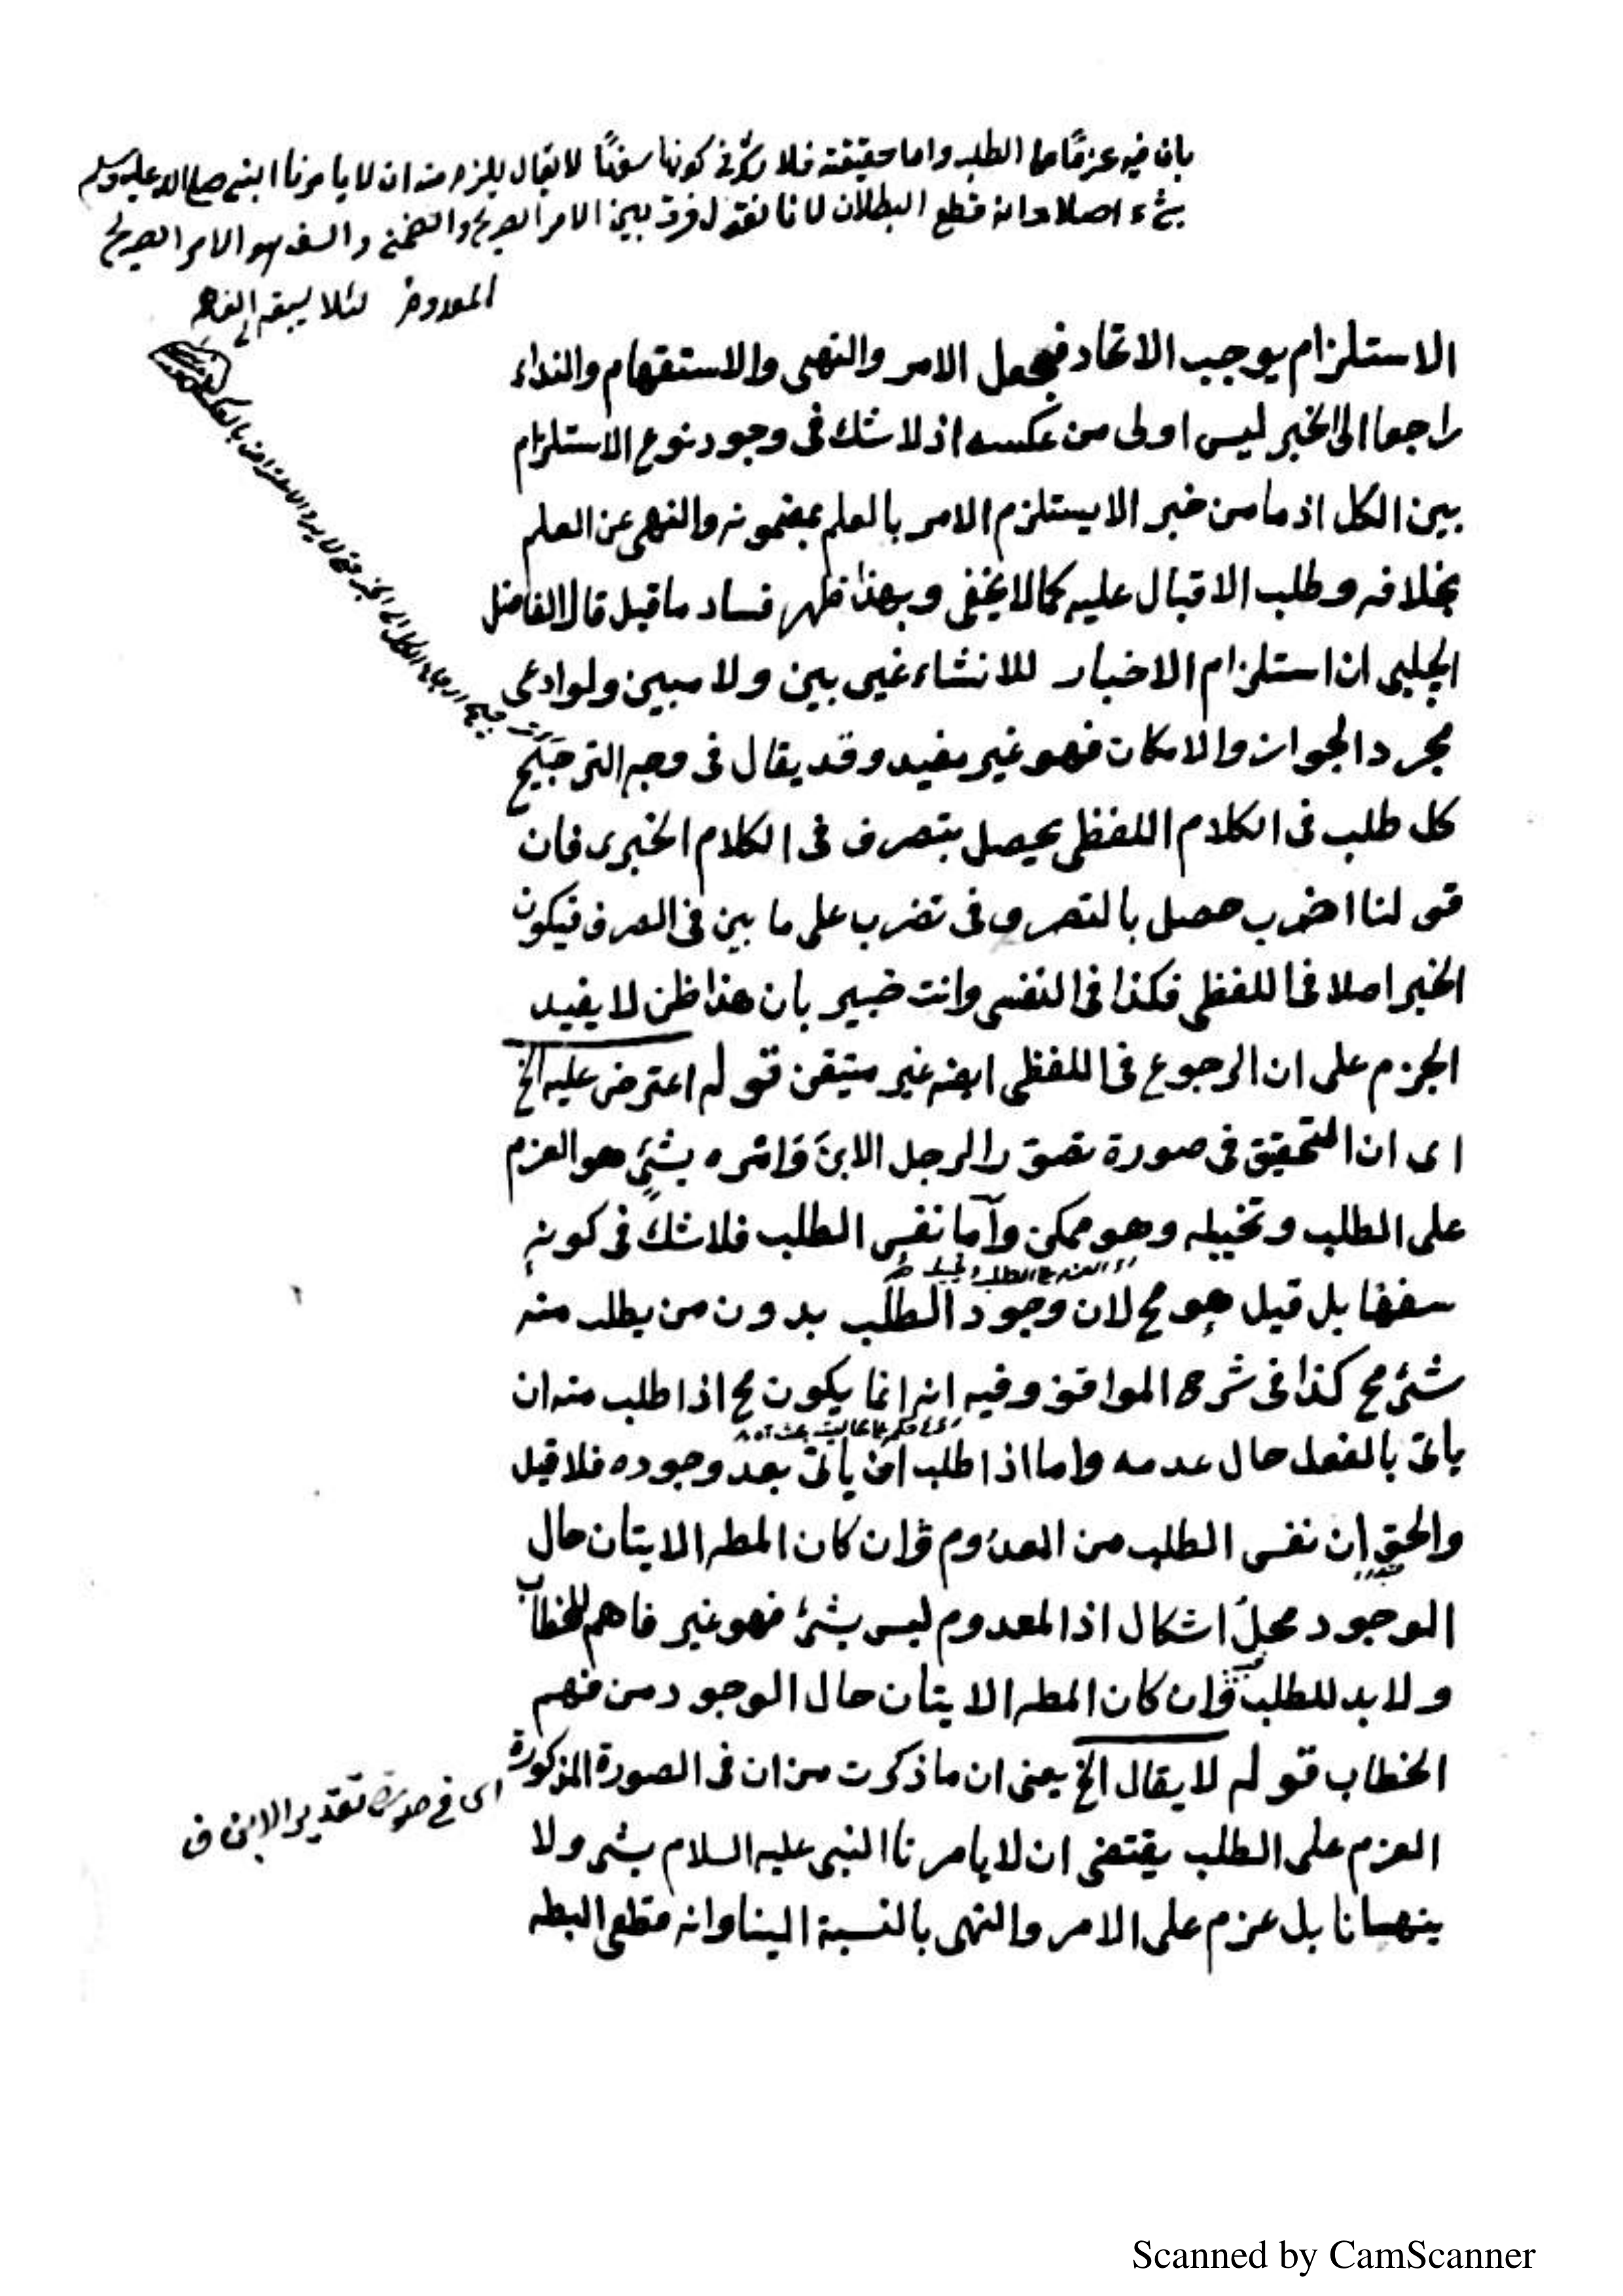 بان فيه عزما على الطلب واما حقيقته فلا شك في كونها سفها لا يقال يلزم منه ان لا يامرنا النبي صلى الله عليه وسلم
بشيء اصلا وانه قطع البطلان لانا نقول فرق بين الامر الصريح والضمني والسفه هو الامر الصريح
للمعدوم لئلا يسبقه الفهم
الاستلزام يوجب الاتحاد فجعل الامر والنهى والاستفهام والنداء
راجعا الى الخبر ليس اولى من عكسه اذ لا شك فى وجود نوع الاستلزام
بين الكل اذ ما من خبر الا يستلزم الامر بالعلم بمضمونه والنهى عن العلم
بخلافه وطلب الاقبال عليه كما لا يخفى وبهذا ظهر فساد ما قيل قال الفاضل
الجلبى ان استلزام الاخبار للانشاء غير بين ولا مبين ولو ادعى
مجرد الجواز والامكان فهو غير مفيد وقد يقال فى وجه الترجيح
كل طلب فى الكلام اللفظى يحصل بتصرف فى الكلام الخبرى فان
قولنا اضرب حصل بالتصرف فى تضرب على ما بين فى الصرف فيكون
الخبر اصلا فى اللفظى فكذا فى النفسى وانت خبير بان هذا ظن لا يفيد
الجزم على ان الرجوع فى اللفظى ايضه غير متيقن قوله اعترض عليه الخ
اى ان المتحقق فى صورة تصور الرجل الابن وامره بشئ هو العزم
على الطلب وتخيله وهو ممكن واما نفس الطلب فلا شك فى كونه
سفها بل قيل هو مح لان وجود الطلب بدون من يطلب منه
شئ مح كذا فى شرح المواقف وفيه انه انما يكون مح اذا طلب منه ان
ياتى بالفعل حال عدمه واما اذا طلب ان ياتى بعد وجوده فلا قيل
والحق ان نفس الطلب من المعدوم وان كان المطه الايتان حال
الوجود محل اشكال اذ المعدوم ليس بشئ فهو غير فاهم للخطاب
ولا بد للطلب وان كان المطه الايتان حال الوجود من فهم
الخطاب قوله لا يقال الخ يعنى ان ما ذكرت من ان فى الصورة المذكورة
اى في صورة تقدير الابن
العزم على الطلب يقتضى ان لا يامرنا النبى عليه السلام بشى ولا
ينهانا بل عزم على الامر والنهى بالنسبة الينا وانه قطعى البطه
Scanned by CamScanner